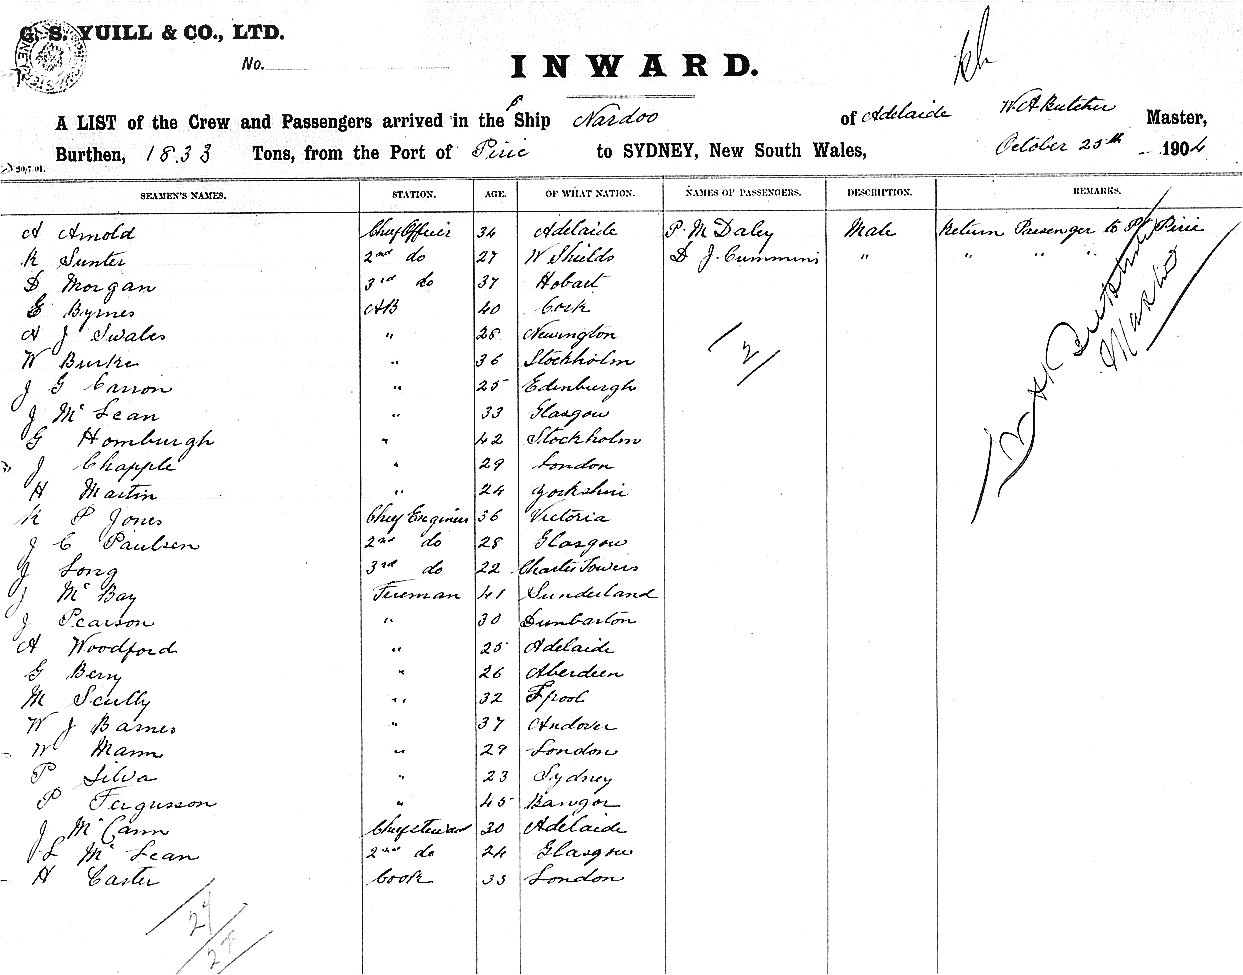 G. S. YUILL & CO., LTD.
No.
INWARD.
A LIST of the Crew and Passengers arrived in the Ship Nardoo of Adelaide W A Butcher Master,
Burthen, 1833 Tons, from the Port of Pirie to SYDNEY, New South Wales, October 25th 1904
SEAMEN'S NAMES. STATION. AGE. OF WHAT NATION. NAMES OF PASSENGERS. DESCRIPTION. REMARKS.
A Arnold Chief Officer 34 Adelaide P. M Daley Male Return Passenger to Pt Pirie
R Sunter 2nd do 27 W Shields D J. Cummins " " " "
D Morgan 3rd do 37 Hobart
E Byrnes AB 40 Cork
A J Swales " 28 Newington
W Burke " 36 Stockholm
J G Carron " 25 Edinburgh
J Mc Lean " 33 Glasgow
G Homburgh " 42 Stockholm
J Chapple " 29 London
H Martin " 24 Yorkshire
R P Jones Chief Engineer 36 Victoria
J C Paulsen 2nd do 28 Glasgow
J Long 3rd do 22 Charters Towers
J Mc Bay Fireman 41 Sunderland
J Pearson " 30 Dunbarton
A Woodford " 25 Adelaide
G Berry " 26 Aberdeen
M Scully " 32 L'pool
W J Barnes " 37 Andover
W Mann " 29 London
P Silva " 23 Sydney
P Fergusson " 45 Bangor
J McCann Chief Steward 30 Adelaide
L Mc Lean 2nd do 24 Glasgow
H Carter Cook 33 London
2
W A Butcher
Master
27